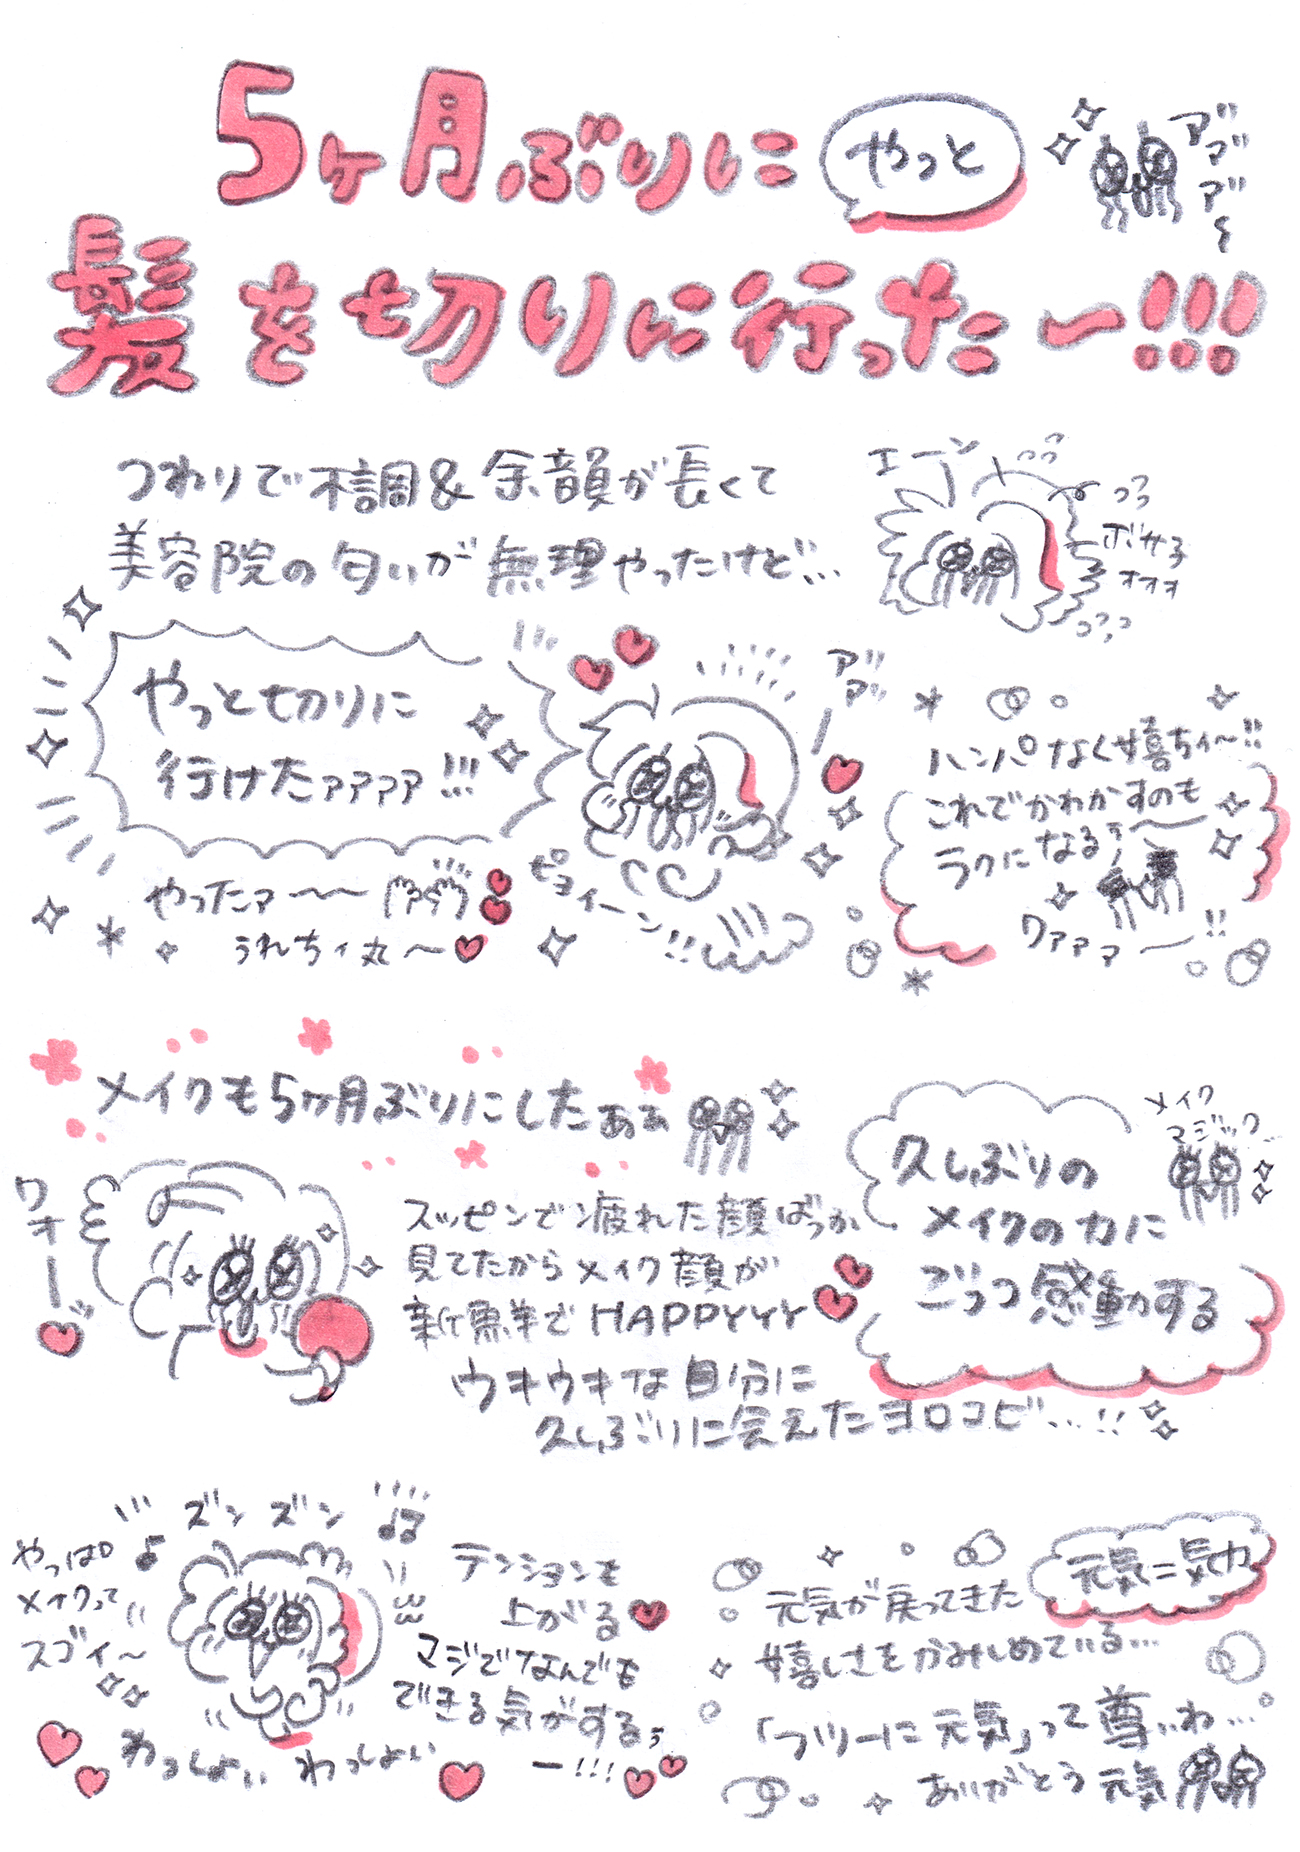 5ヶ月ぶりに
やっと
アア゛
アア゛
髪を切りに行ったー!!!
つわりで不調&余韻が長くて
美容院の匂いが無理やったけど…
ボサァ
ォォォ
やっと切りに
行けたァァァァ!!!
アア゛ー
やったァ〜〜
うれちィ丸〜
ピョイーン!!
ハンパなく嬉ちィ〜!!
これでかわかすのも
ラクになるぅ〜
ワァァァ〜!!
メイクも5ヶ月ぶりにしたぁぁ
ワオー
スッピンで疲れた顔ばっか
見てたからメイク顔が
新鮮でHAPPYYY
ウキウキな自分に
久しぶりに会えたヨロコビ…!!
メイク
マジック…
久しぶりの
メイクの力に
ごっつ感動する
ズンズン
やっぱ
メイクって
スゴイ〜
わっしょい わっしょい
テンションも
上がる
マジでなんでも
できる気がするぅ
ー!!!
元気=気力
元気が戻ってきた
嬉しさをかみしめている…
「フツーに元気」って尊いわ…
ありがとう元気